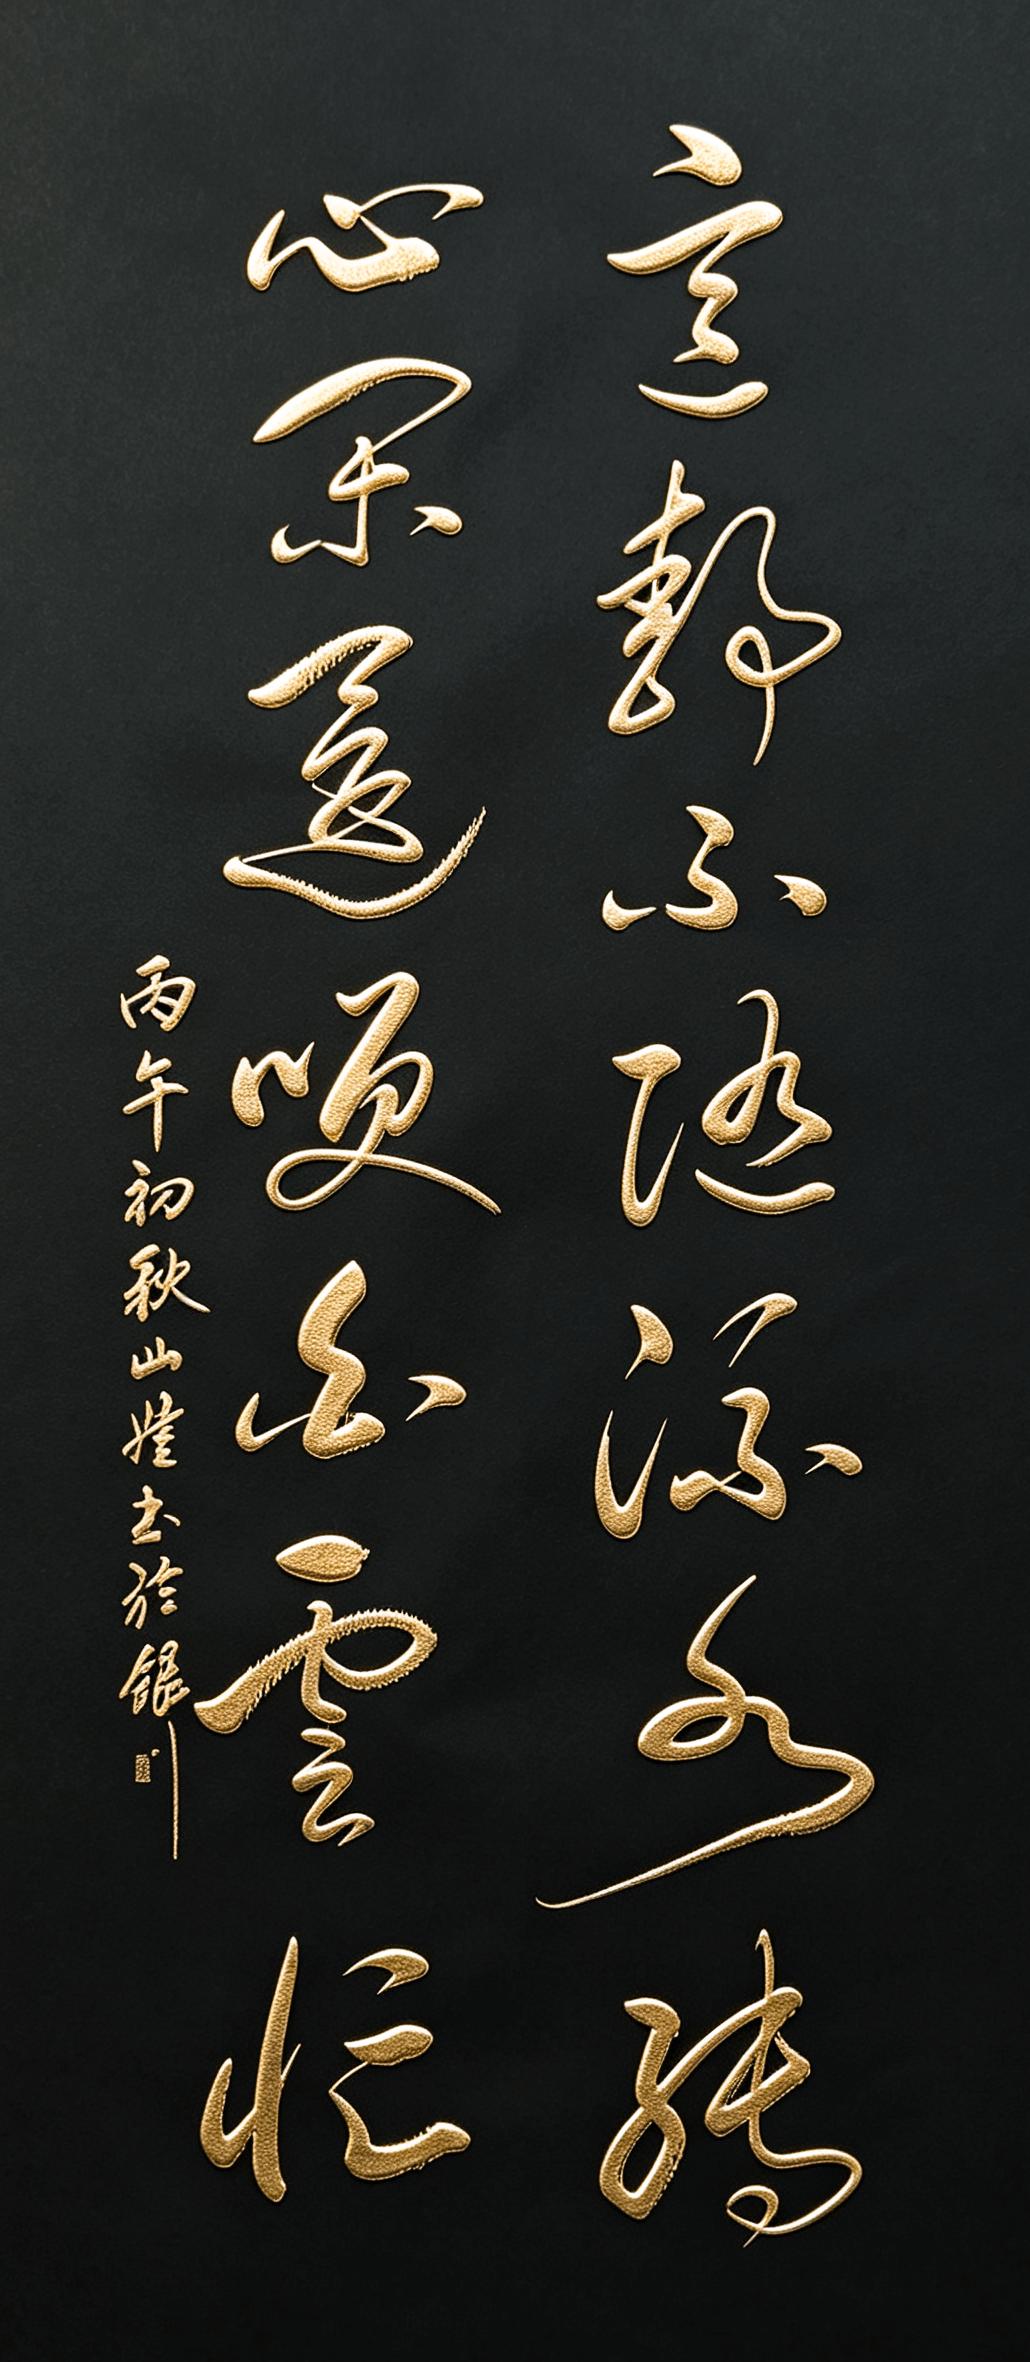 意静不随流水转
心闲还笑白云忙
丙午初秋山 书於银川